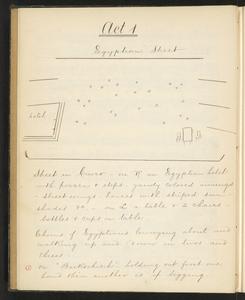 Act 1
Egyptian Street
hotel
Street in Cairo - on R. an Egyptian hotel
with porches & steps. gaudy colored awnings
- street awnings - houses with striped sun
shades &c. - on L. a table & 2 chairs -
bottles & cups on table.
Chorus of Egyptians lounging about and
walking up and down in twos and
threes.
on "Backsheesh" holding out first one
hand then another as if begging